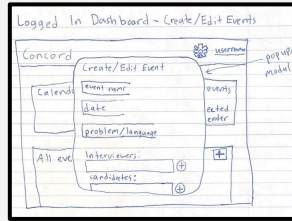 Logged In Dashboard - Create/Edit Events
Concord
username
Create/Edit Event
popup
modal
event name
date
problem/language
Interviewers:
candidates:
Calend
events
ested
ender
All eve